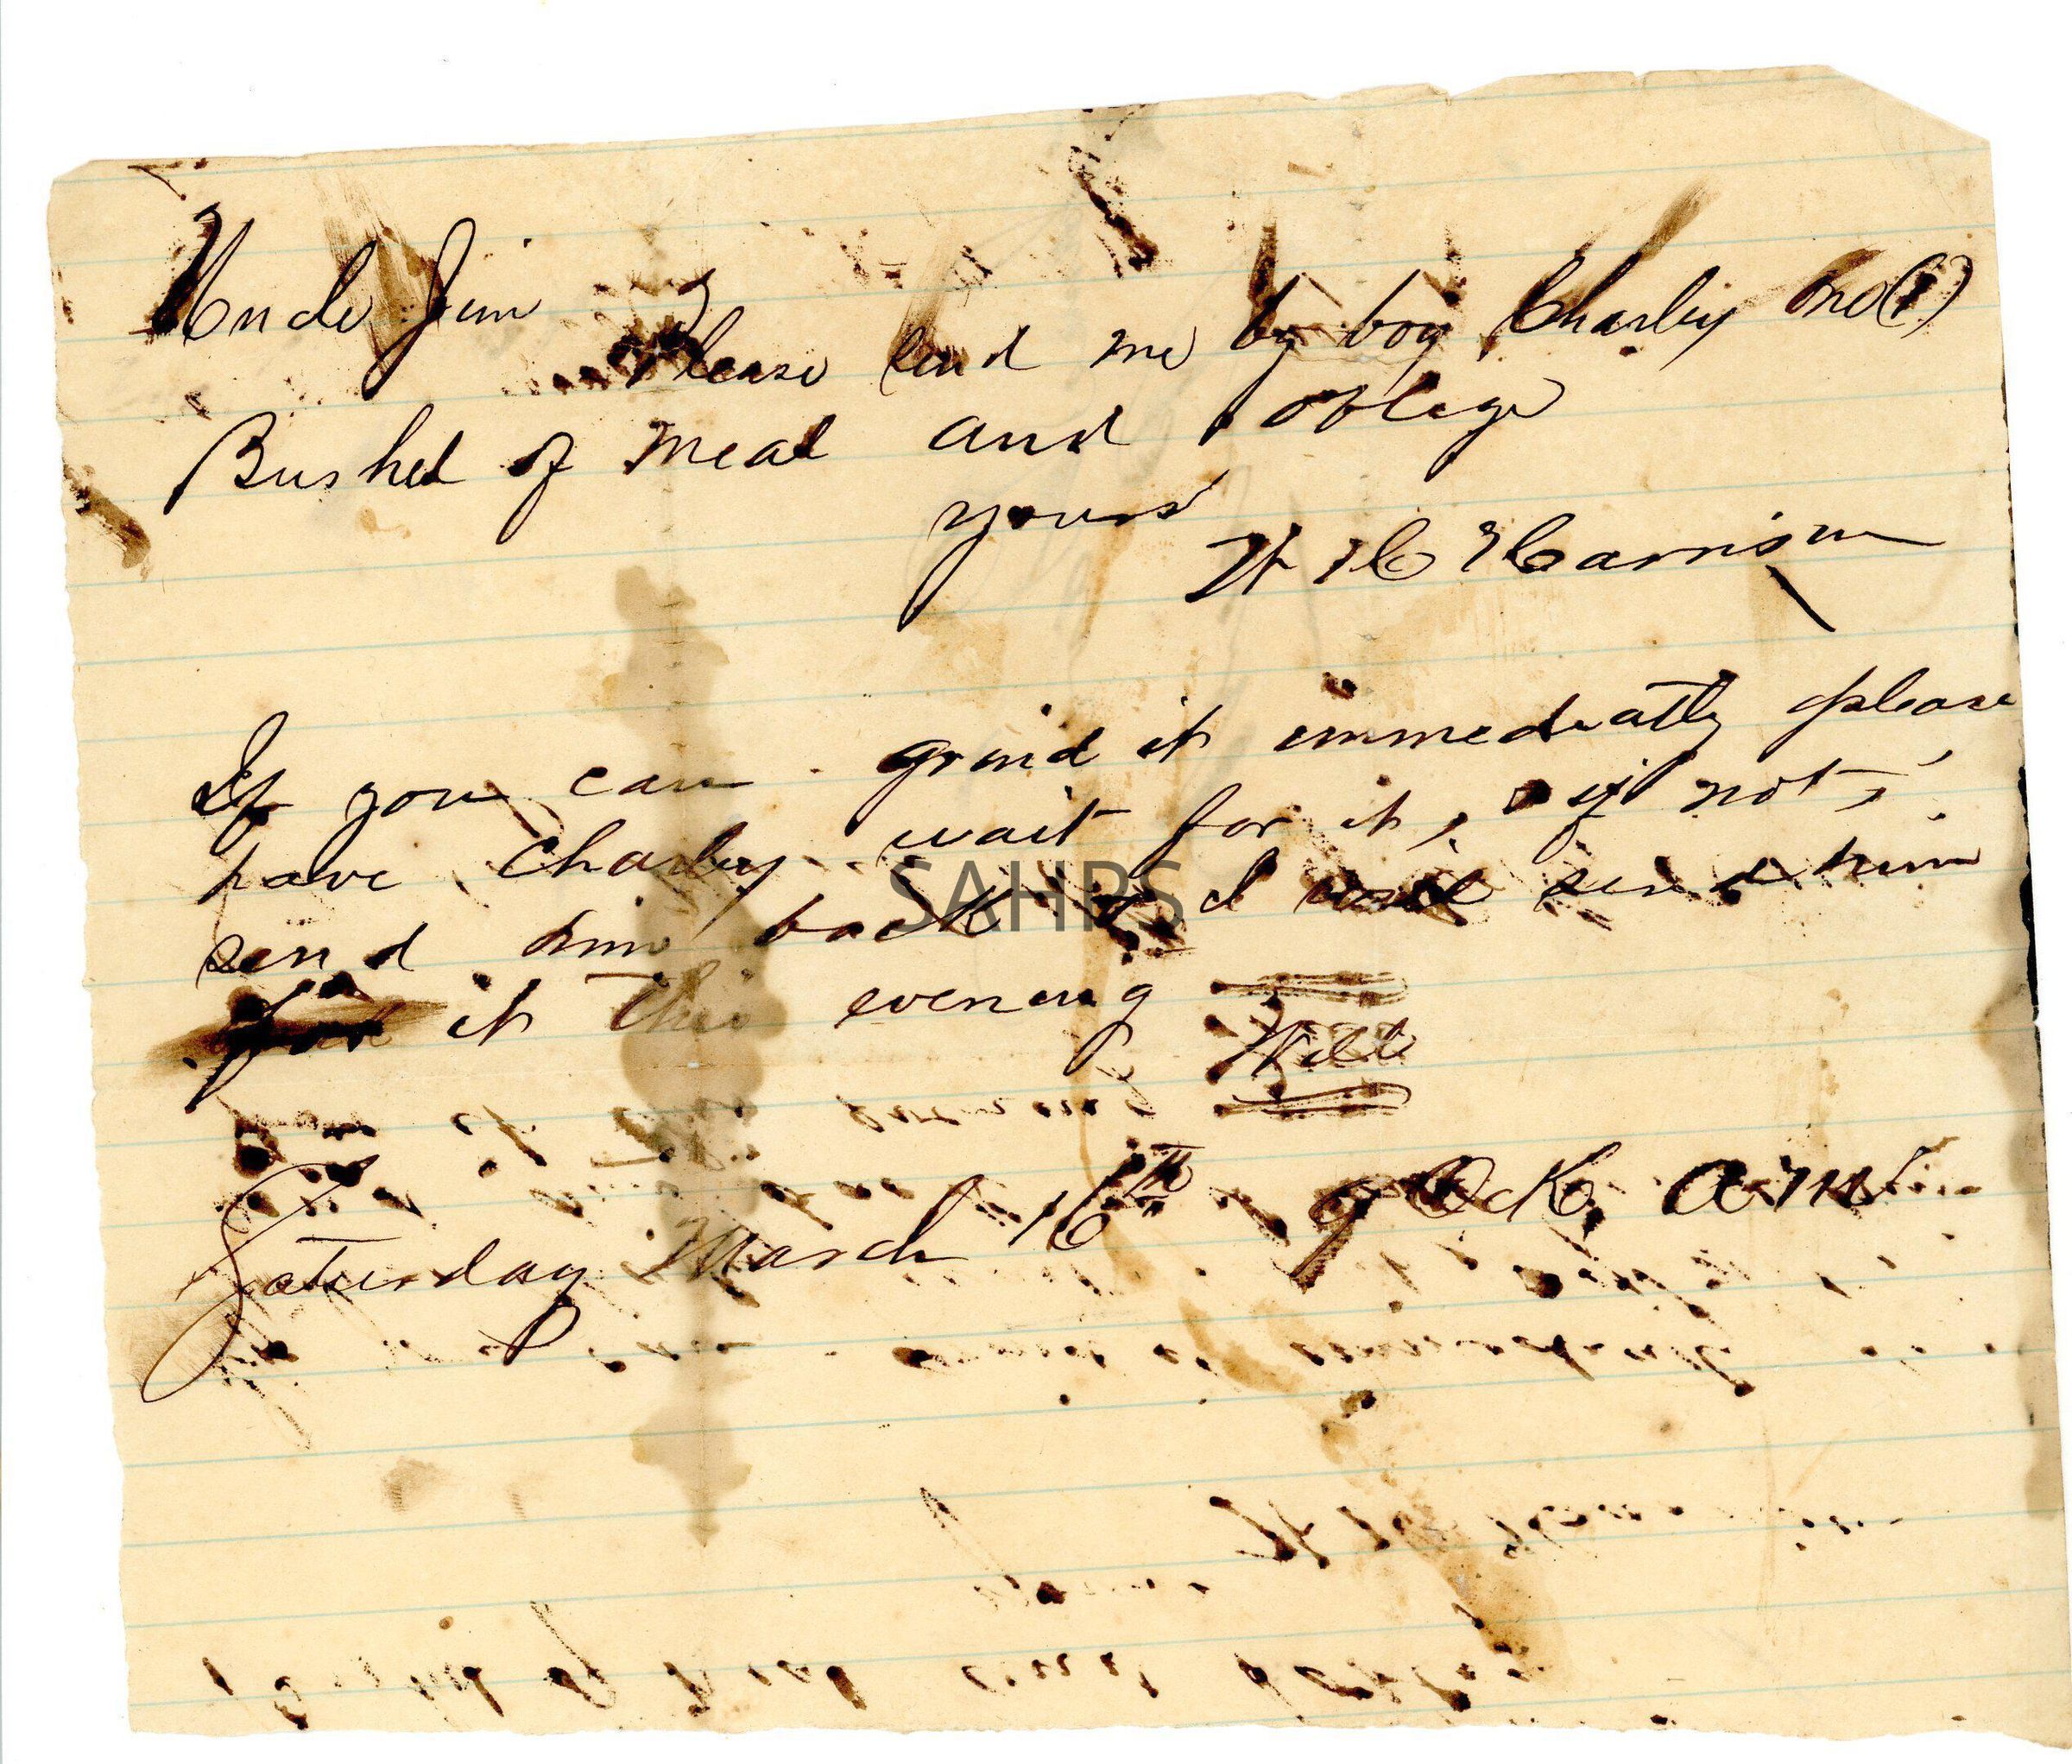 Uncle Jim
Please send me by boy Charley one (1)
Bushel of meal and oblige
yours
W H Harrison
If you can grind it immediatly please
have Charley wait for it, if not,
send him back & I will send him
for it this evening
Will
Saturday March 16th 9 OcK, A.M.
SAHPS